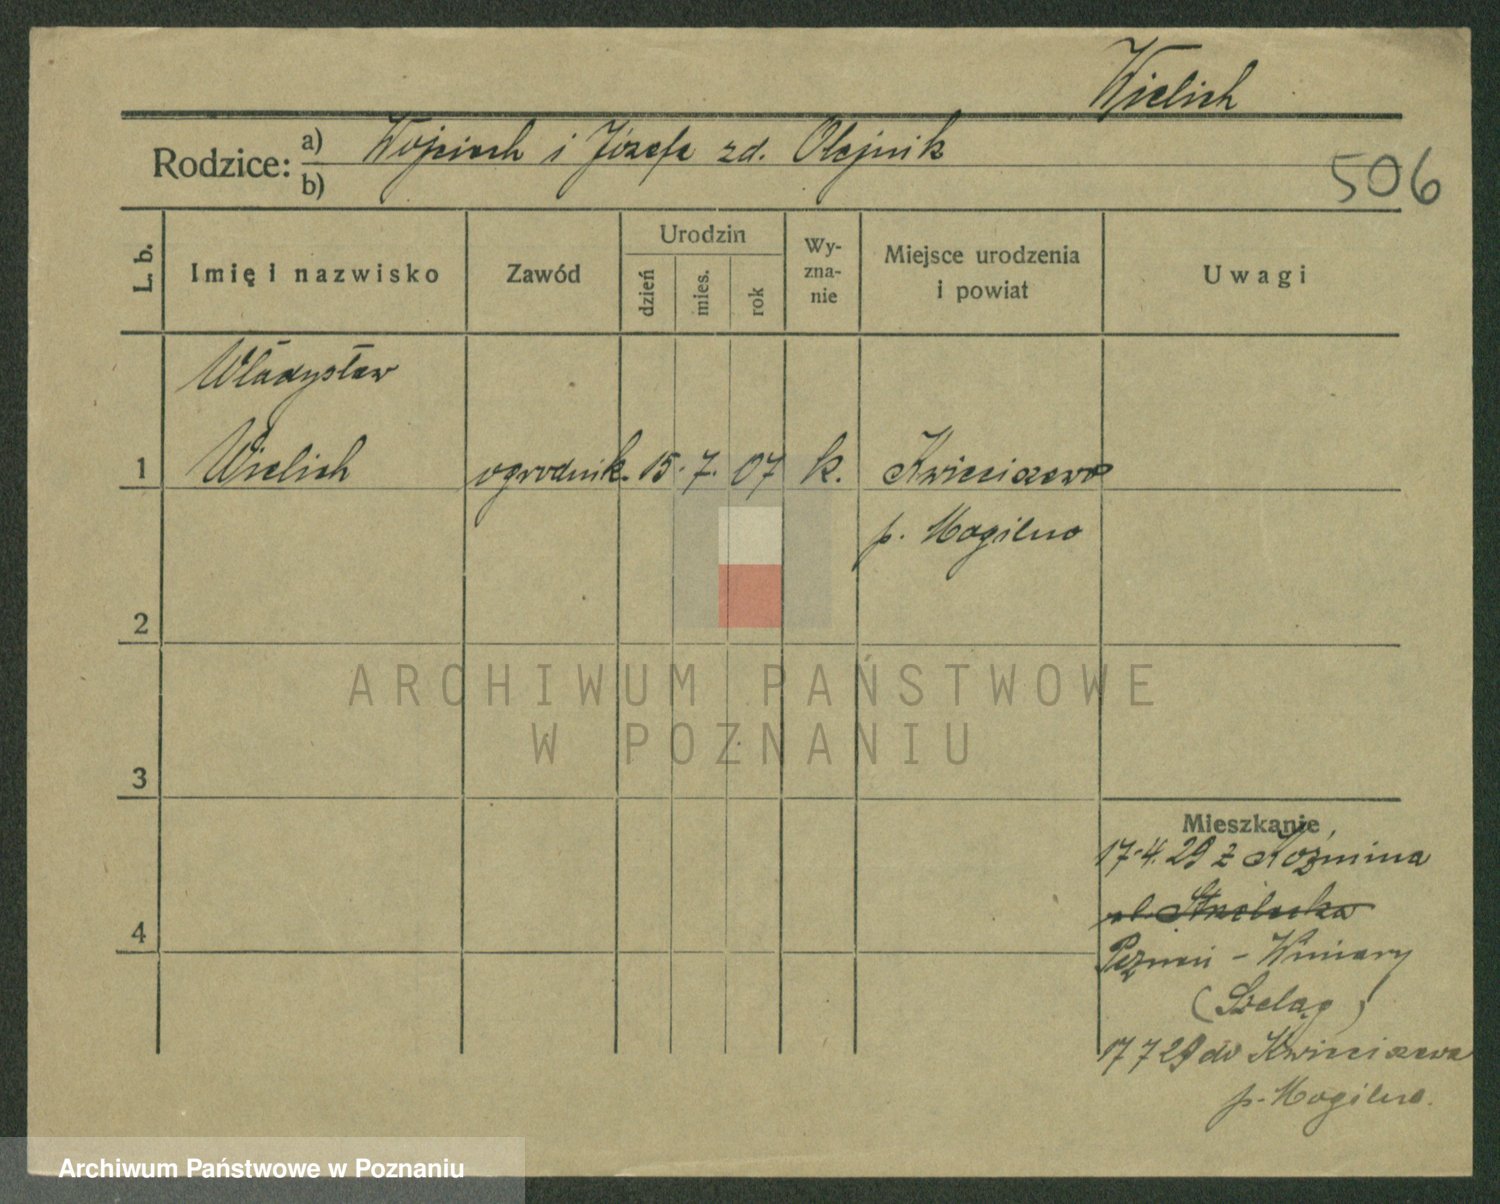 Wielich
Rodzice: a) Wojciech i Józefa zd. Olejnik
b)
506
L. b.
Imię i nazwisko
Zawód
Urodzin
dzień
mies.
rok
Wy-
zna-
nie
Miejsce urodzenia
i powiat
Uwagi
Władysław
1 Wielich ogrodnik. 15. 7. 07 k. Kwieciszewo
p. Mogilno
2
ARCHIWUM PAŃSTWOWE
W POZNANIU
3
Mieszkanie
17.4.29 z Koźmina
ul. Strzelecka
4
Poznań - Winiary
(Szeląg)
17 7 29 do Kwieciszewa
p. Mogilno.
Archiwum Państwowe w Poznaniu